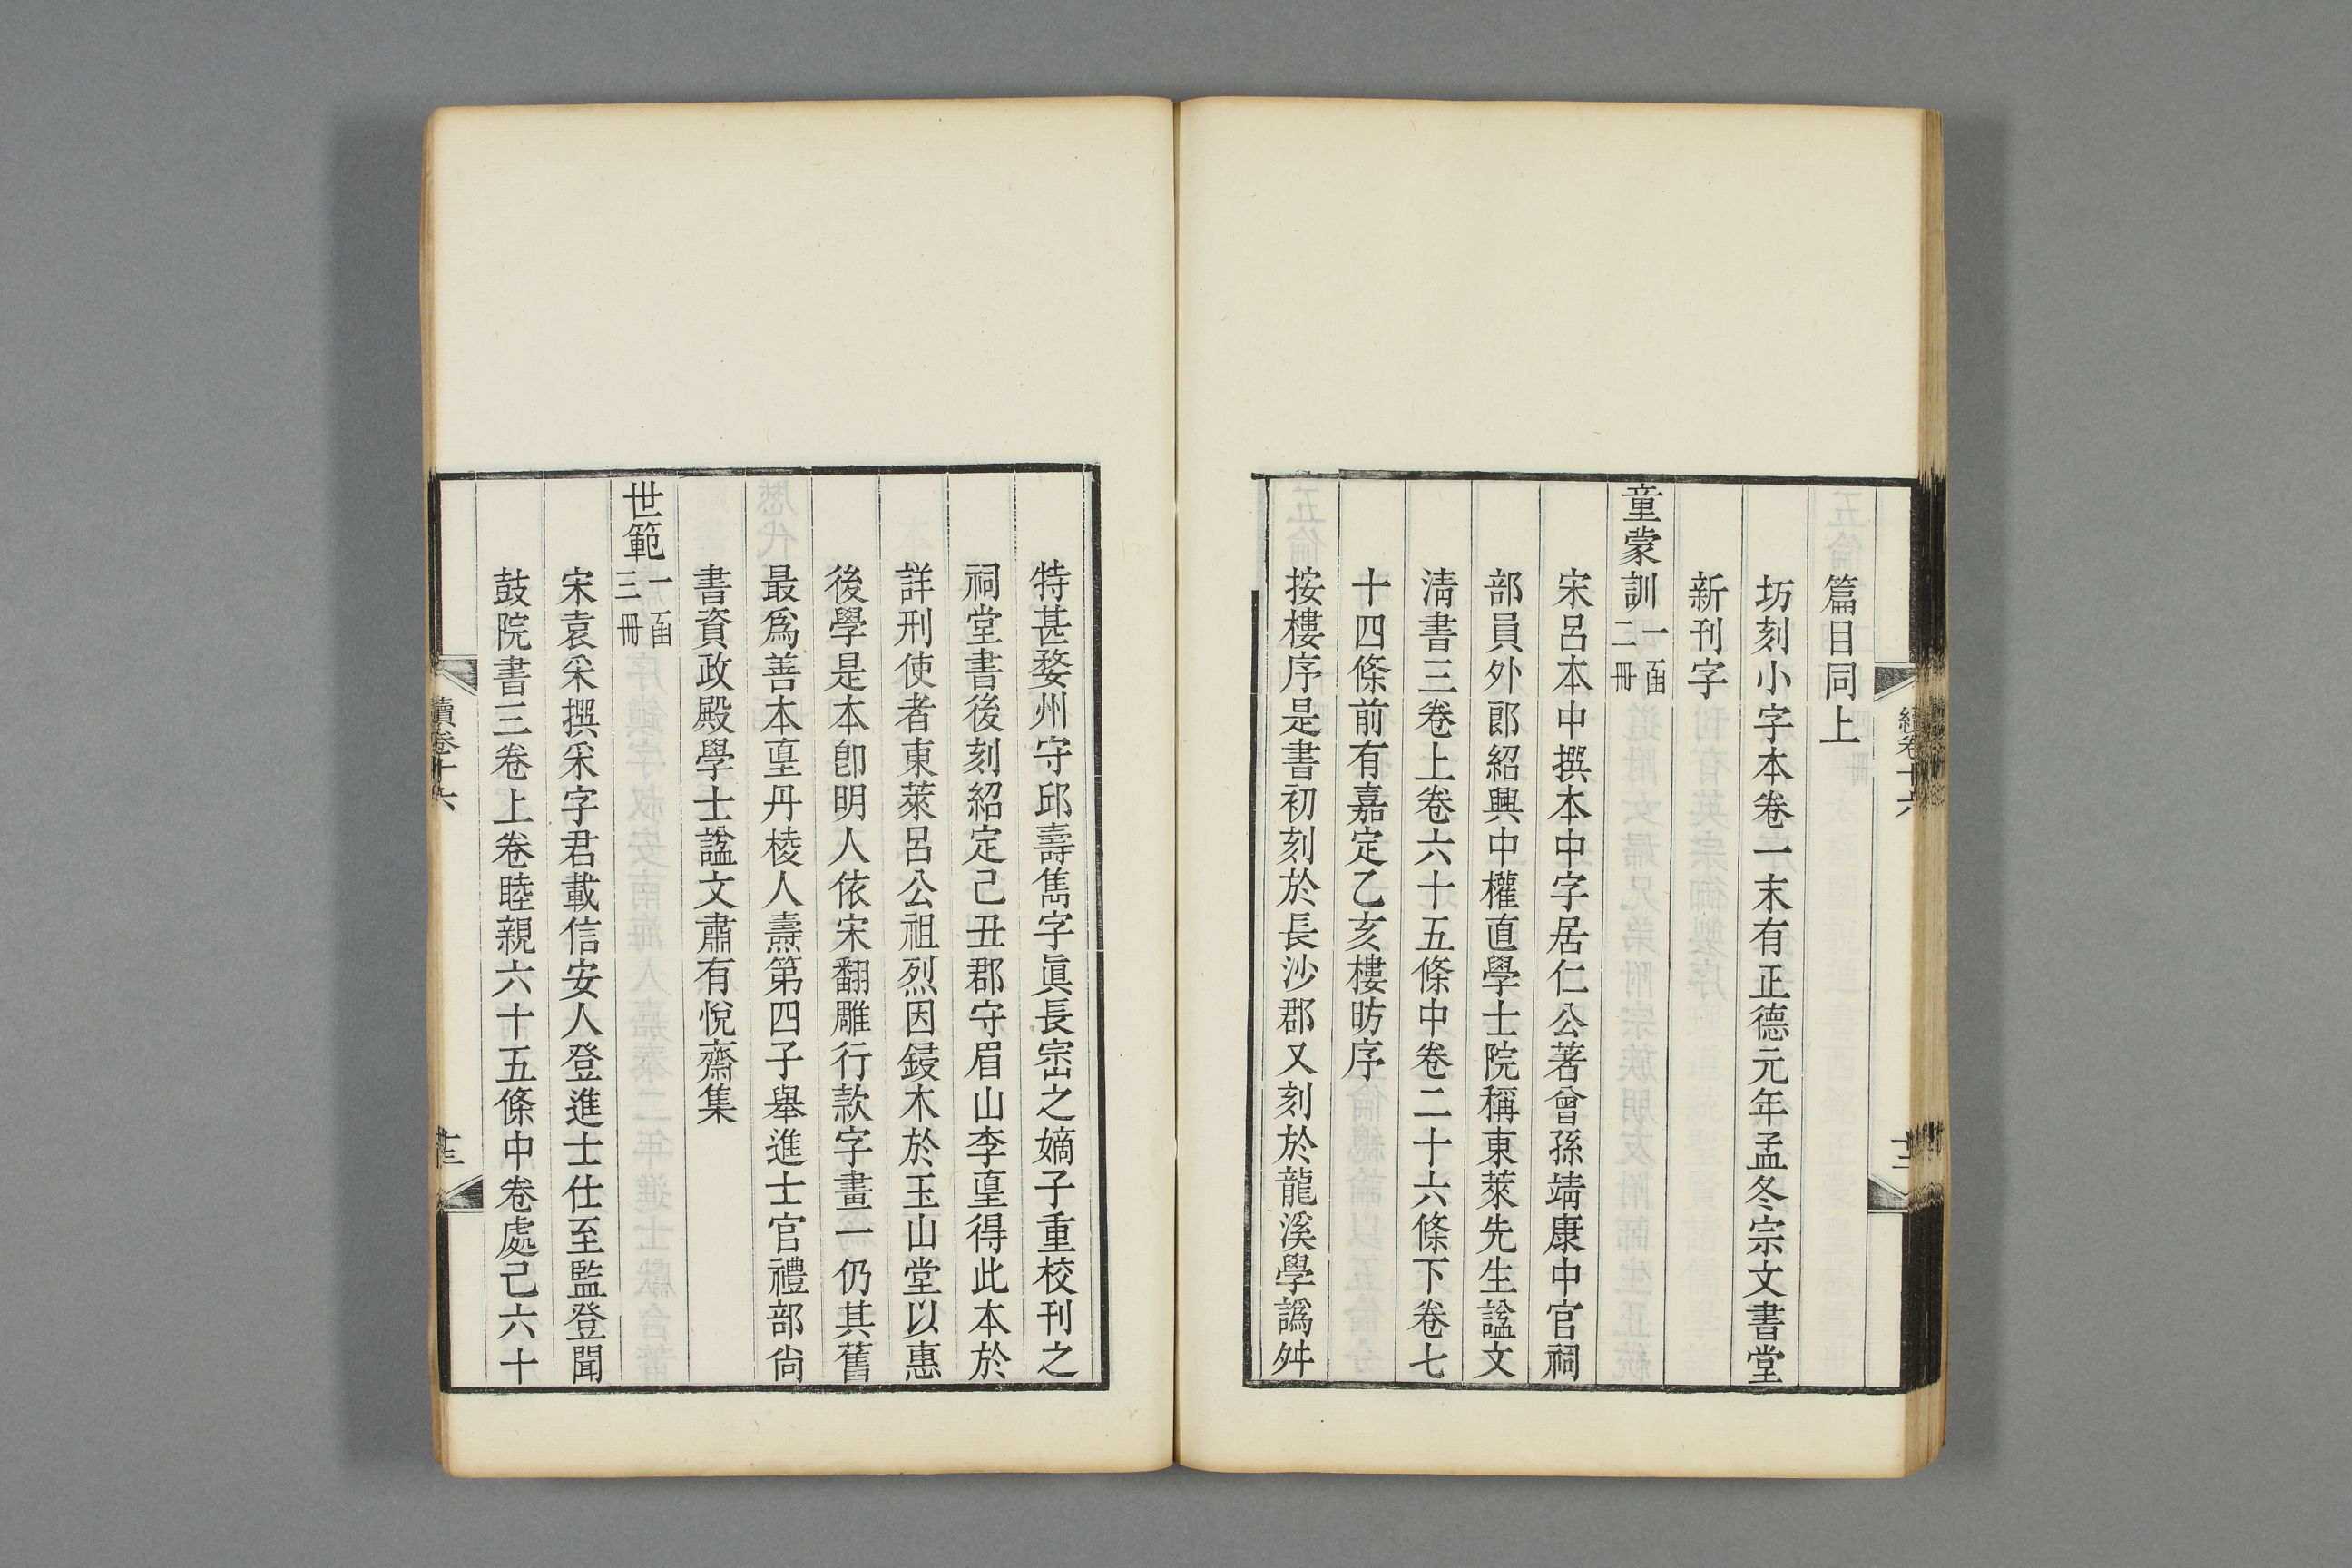 篇目同上
坊刻小字本卷一末有正德元年孟冬宗文書堂
新刊字
童蒙訓一函二冊
宋呂本中撰本中字居仁公著曾孫靖康中官祠
部員外郎紹興中權直學士院稱東萊先生諡文
清書三卷上卷六十五條中卷二十六條下卷七
十四條前有嘉定乙亥樓昉序
按樓序是書初刻於長沙郡又刻於龍溪學譌舛
特甚婺州守邱壽雋字眞長宗之嫡子重校刊之
祠堂書後刻紹定己丑郡守眉山李𡌴得此本於
詳刑使者東萊呂公祖烈因鋟木於玉山堂以惠
後學是本卽明人依宋翻雕行款字畫一仍其舊
最爲善本𡌴丹棱人燾第四子舉進士官禮部尙
書資政殿學士諡文肅有悅齋集
世範一函三冊
宋袁采撰采字君載信安人登進士仕至監登聞
鼓院書三卷上卷睦親六十五條中卷處己六十
續卷十六
十三